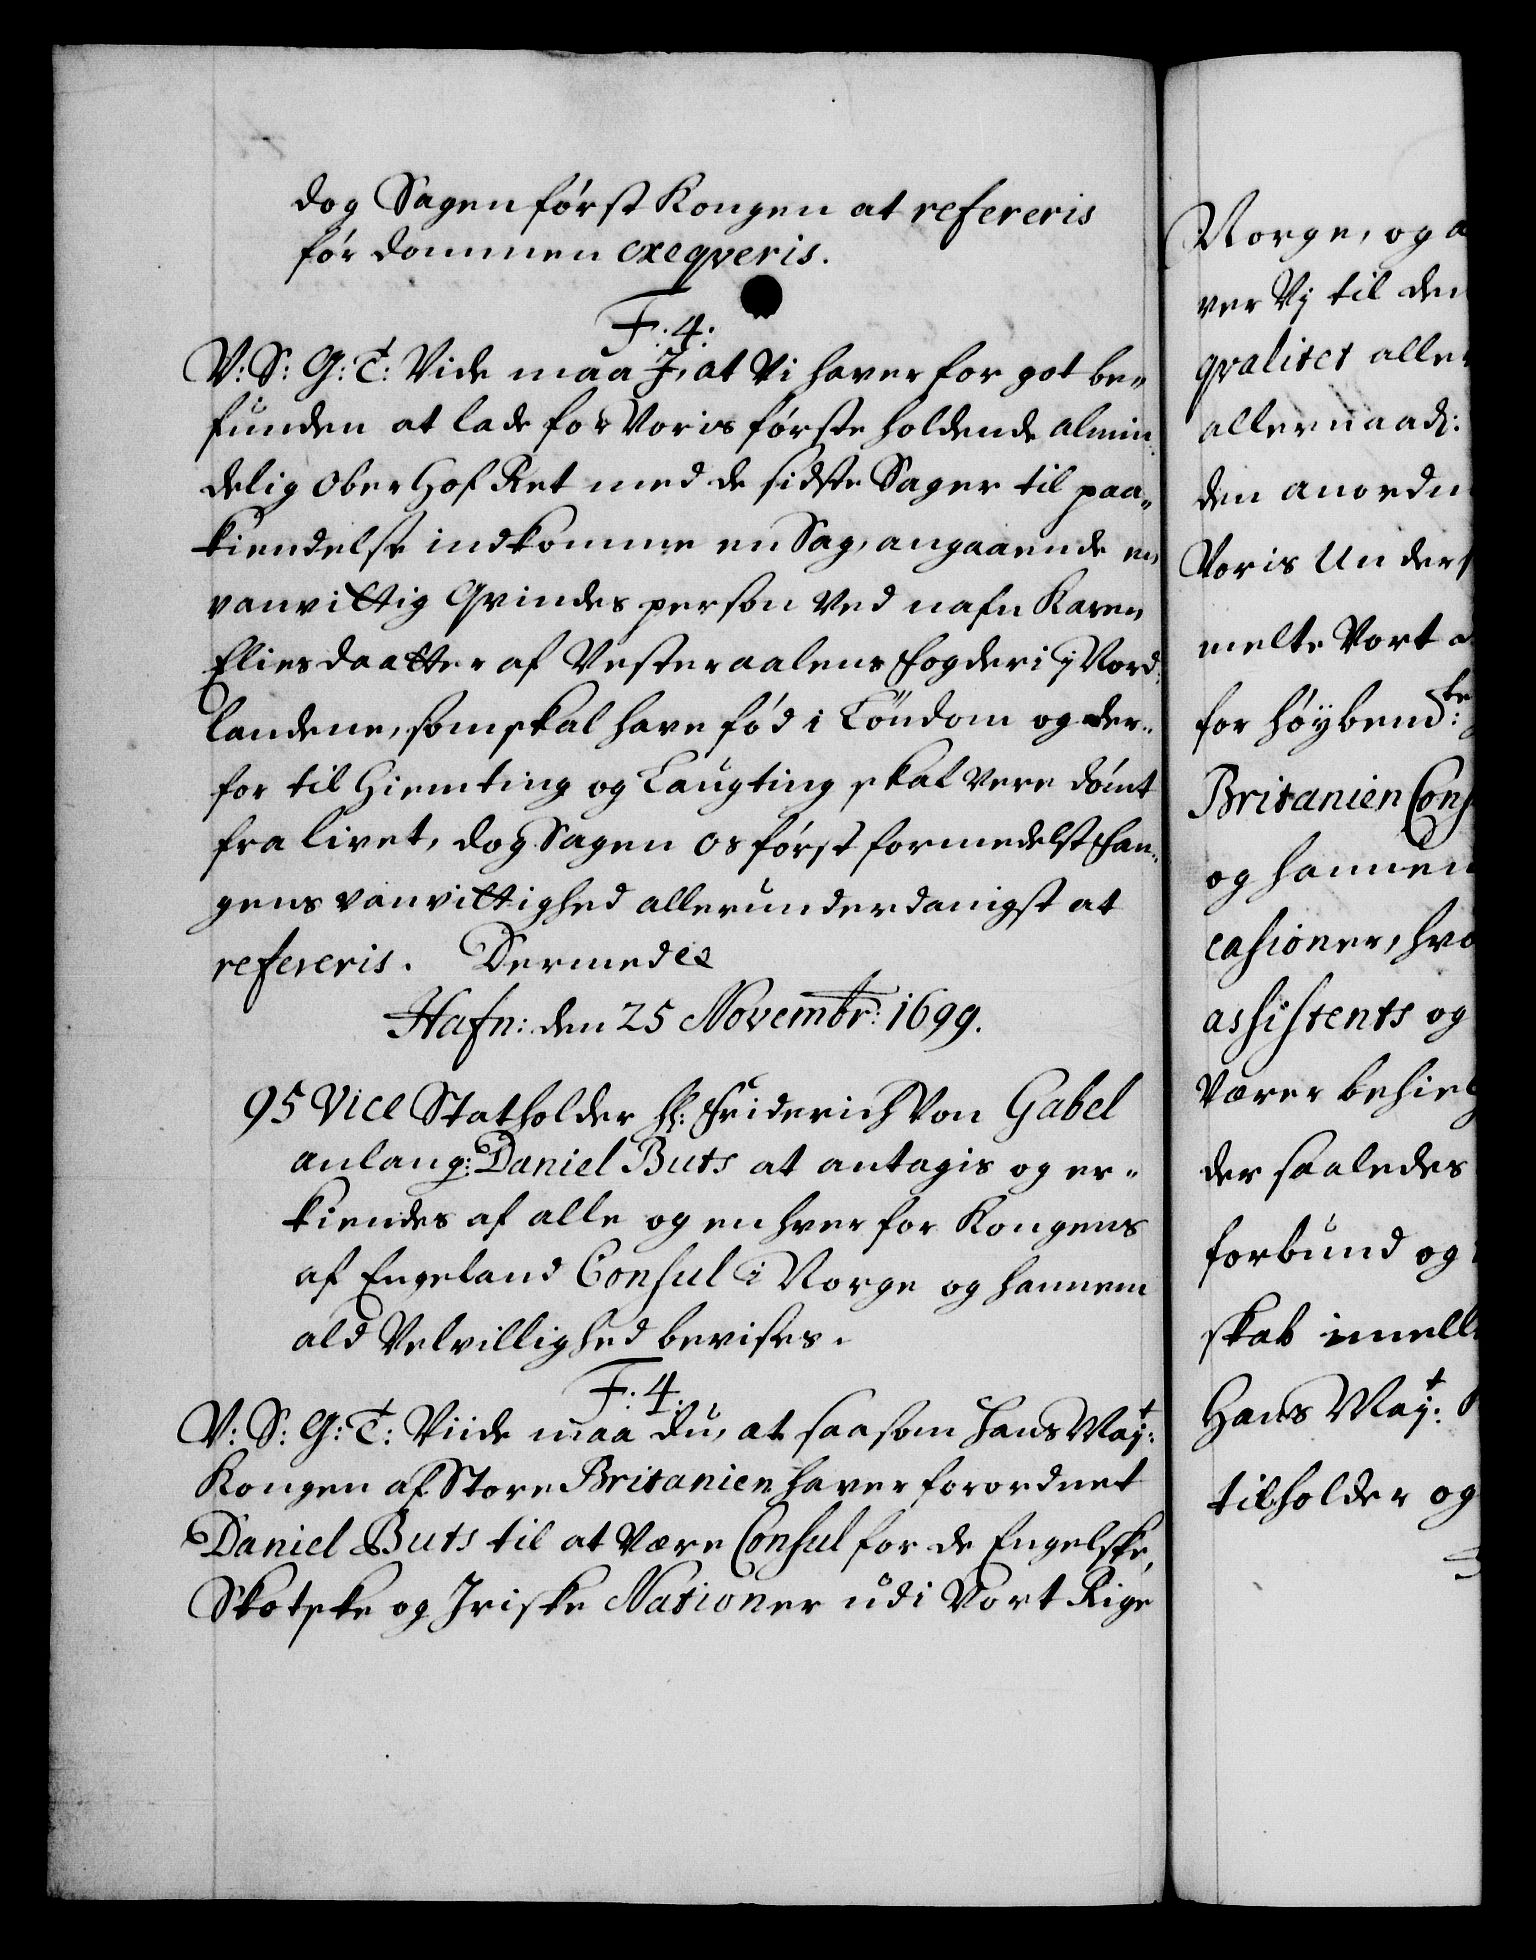 dog Sagen först Kongen at refereris
för dommen exeqveris.
F. 4.
V: S: G: T: Vide maa J, at Vi haver for got be-
funden at lade for Voris förste holdende almin-
delig Ober Hof Ret med de sidste Sager til paa-
kiendelse indkomme en Sag, angaaende en
vanvittig Qvindes person Ved nafn Karen
Elies daatter af Vesteraalens Fogderi i Nord-
landene, som skal have föd i Löndom og der-
for til Hiemting og Laugting skal vere dömt
fra livet, dog Sagen Os först formedelst Fan-
gens vanvittighed allerunderdanigst at
refereris. Dermed etc
Hafn: den 25 Novembr: 1699.
95 Vice Statholder H: Friderich Von Gabel
anlang: Daniel Buts at antagis og er-
kiendes af alle og en hver for Kongens
af Engeland Consul i Norge og hannem
ald Velvillighed bevises.
F. 4.
V: S: G: T: Viide maa du, at saasom Hans Maj:t
Kongen af Store Britanien haver forordnet
Daniel Buts til at Være Consul for de Engelske,
Skotske og Jriske Nationer udi Vort Rige
Norge, og a
ver Vj til den
qvalitet aller
allernaad:
den anordn
Voris Unders
melte Vort
for höybem:te
Britanien Cons
og hannem
casioner, hvo
assistents og
Værer behiel
der saaledes
forbund og
skab imell
Hans Maj:t
tilholder og